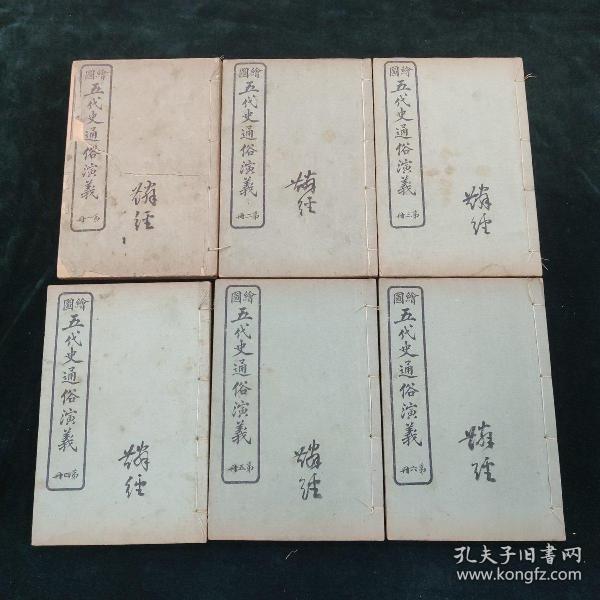 繪圖
五代史通俗演義
第一册
繪圖
五代史通俗演義
第二册
繪圖
五代史通俗演義
第三册
繪圖
五代史通俗演義
第四册
繪圖
五代史通俗演義
第五册
繪圖
五代史通俗演義
第六册
孔夫子旧书网
www.kongfz.com